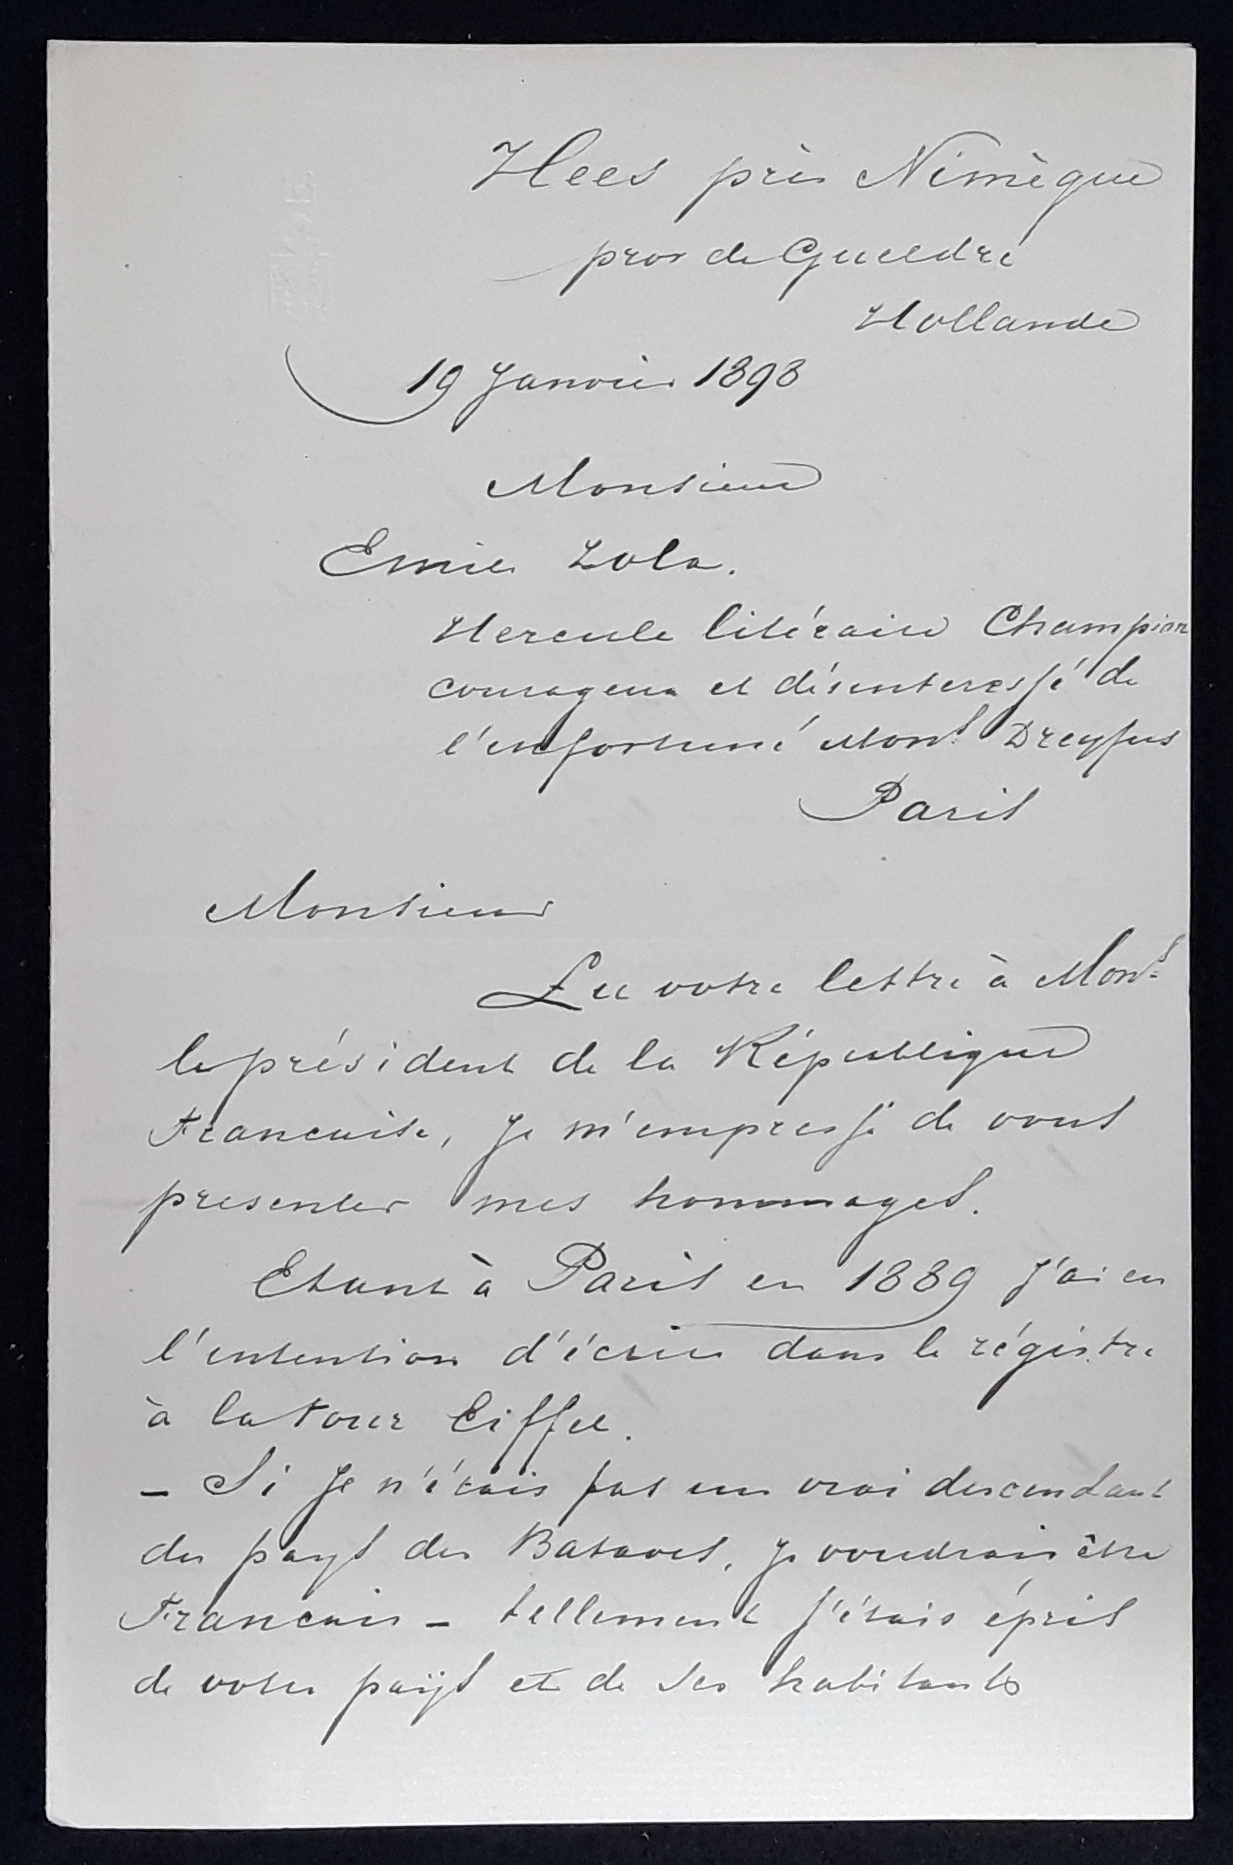 Hees près Nimègue
prov de Gueldre
Hollande
19 Janvier 1898
Monsieur
Emile Zola.
Hercule litéraire Champion
courageux et désinteressé de
l'infortuné Mons. Dreyfus
Paris
Monsieur
Lu votre lettre à Mons.
le président de la République
Francaise, Je m'empresse de vous
presenter mes hommages.
Etant à Paris en 1889 j'ai eu
l'intention d'écrire dans le régistre
à la tour Eiffel.
- Si Je n'étais pas un vrai descendant
du pays des Bataves, je voudrais être
Francais - tellement j'étais épris
de votre paÿs et de ses habitants